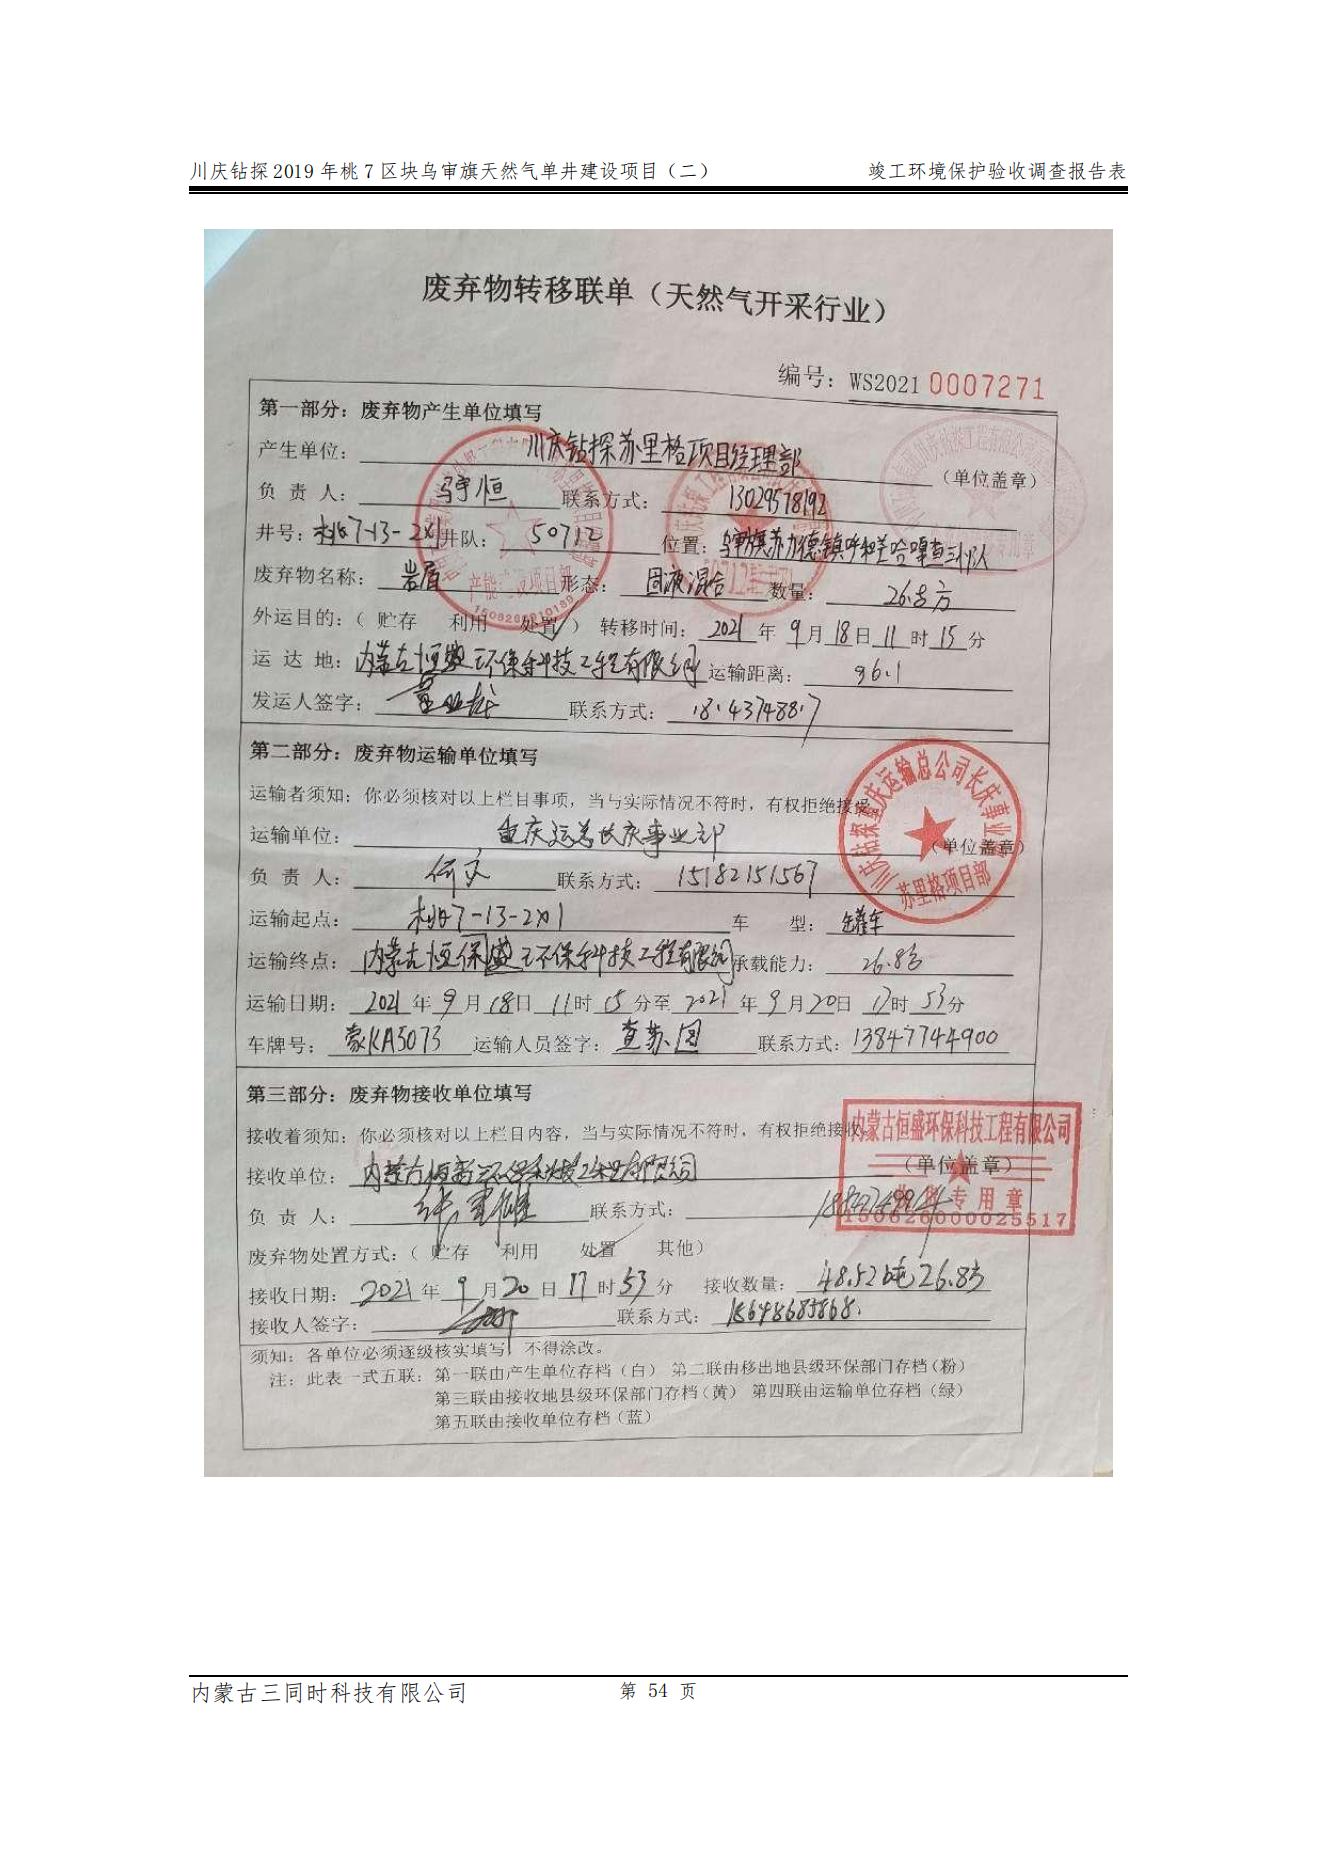 川庆钻探2019年桃7区块乌审旗天然气单井建设项目（二） 竣工环境保护验收调查报告表
废弃物转移联单（天然气开采行业）
编号：WS2021 0007271
第一部分：废弃物产生单位填写
产生单位：川庆钻探苏里格项目经理部 （单位盖章）
负 责 人： 联系方式：13029578192
井号：桃7-13-2X1 井队：50712 位置：乌审旗苏力德镇呼和芒哈嘎查三小队
废弃物名称：岩屑 形态：固液混合 数量：26.8方
外运目的：（ 贮存 利用 处置 ） 转移时间：2021年9月18日11时15分
运 达 地：内蒙古恒盛环保科技工程有限公司 运输距离：96.1
发运人签字： 联系方式：
第二部分：废弃物运输单位填写
运输者须知：你必须核对以上栏目事项，当与实际情况不符时，有权拒绝接受。
运输单位：重庆运总长庆事业部 （单位盖章）
负 责 人：何文 联系方式：15182151567
运输起点：桃7-13-2X1 车 型：罐车
运输终点：内蒙古恒保盛环保科技工程有限公司 承载能力：26.8方
运输日期：2021年9月18日11时15分至2021年9月20日17时53分
车牌号：蒙KA5073 运输人员签字：查苏图 联系方式：13847744900
川庆钻探重庆运输总公司长庆事业部
苏里格项目部
第三部分：废弃物接收单位填写
接收着须知：你必须核对以上栏目内容，当与实际情况不符时，有权拒绝接收。
内蒙古恒盛环保科技工程有限公司
接收单位：内蒙古恒盛环保科技工程有限公司 （单位盖章）
专用章
负 责 人： 联系方式：
150626000025517
废弃物处置方式：（ 贮存 利用 处置 其他）
接收日期：2021年9月20日17时53分 接收数量：48.52吨26.8方
接收人签字： 联系方式：18648685868
须知：各单位必须逐级核实填写，不得涂改。
注：此表一式五联：第一联由产生单位存档（白） 第二联由移出地县级环保部门存档（粉）
第三联由接收地县级环保部门存档（黄） 第四联由运输单位存档（绿）
第五联由接收单位存档（蓝）
内蒙古三同时科技有限公司 第 54 页